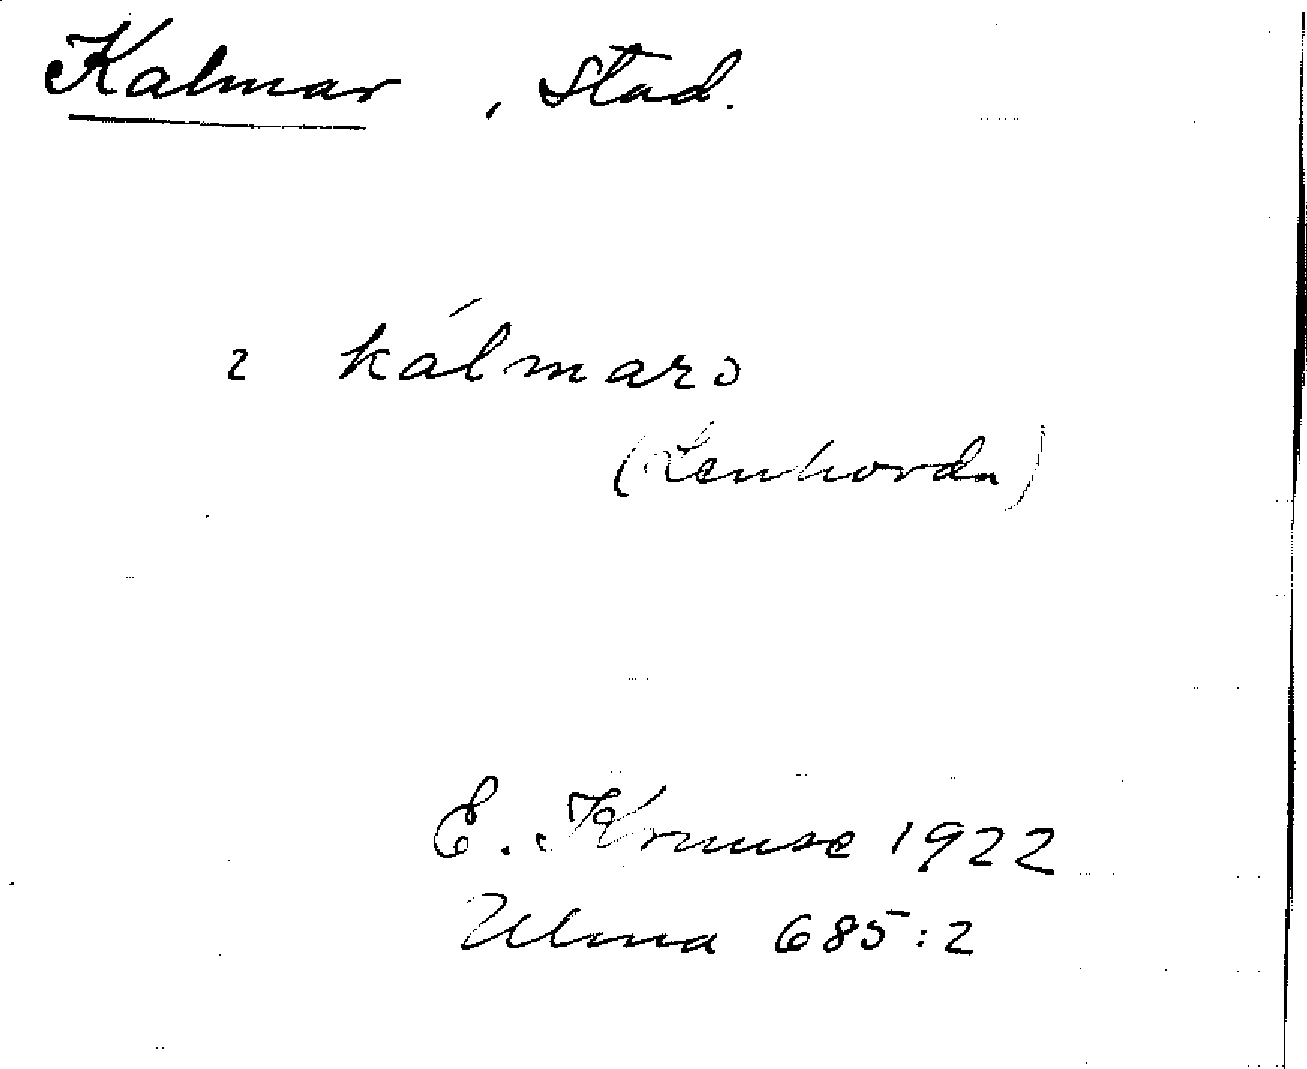 Kalmar, stad.
ɩ kálmarɔ
(Lenhovda)
E. Kruuse 1922
Ulma 685:2